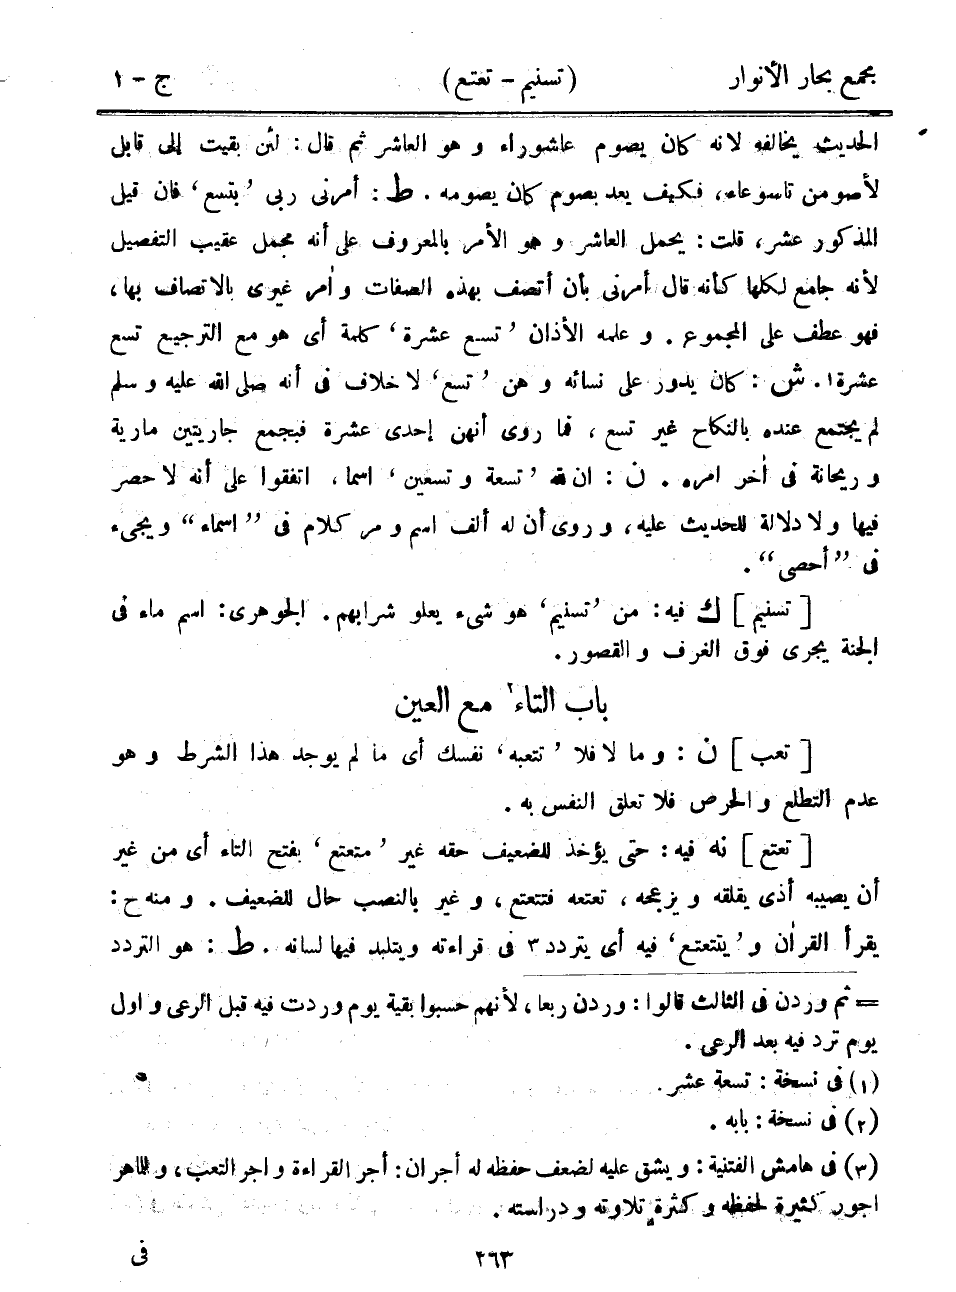 مجمع بحار الأنوار (تسنيم - تعتع) ج - ١
الحديث يخالفه لانه كان يصوم عاشوراء و هو العاشر ثم قال: لئن بقيت إلى قابل
لأصومن تاسوعاء، فكيف يعد بصوم كان يصومه. ط: أمرنى ربى ’بتسع‘ فان قيل
المذكور عشر، قلت: يحمل العاشر و هو الأمر بالمعروف على أنه مجمل عقيب التفصيل
لأنه جامع لكلها كأنه قال أمرنى بأن أتصف بهذه الصفات و اٰمر غيرى بالاتصاف بها،
فهو عطف على المجموع. و علمه الأذان ’تسع عشرة‘ كلمة أى هو مع الترجيع تسع
عشرة١. ش: كان يدور على نسائه و هن ’تسع‘ لا خلاف فى أنه صلى الله عليه و سلم
لم يجتمع عنده بالنكاح غير تسع، فما روى أنهن إحدى عشرة فبجمع جاريتين مارية
و ريحانة فى اٰخر امره. ن: ان لله ’تسعة و تسعين‘ اسما، اتفقوا على أنه لا حصر
فيها و لا دلالة للحديث عليه، و روى أن له ألف اسم و مر كلام فى ”اسماء“ و يجىء
فى ”أحصى“.
[تسنيم] ك فيه: من ’تسنيم‘ هو شىء يعلو شرابهم. الجوهرى: اسم ماء فى
الجنة يجرى فوق الغرف و القصور.
باب التاء٢ مع العين
[تعب] ن: و ما لا فلا ’تتعبه‘ نفسك أى ما لم يوجد هذا الشرط و هو
عدم التطلع و الحرص فلا تعلق النفس به.
[تعتع] نه فيه: حتى يؤخذ للضعيف حقه غير ’متعتع‘ بفتح التاء أى من غير
أن يصيبه أذى يقلقه و يزعجه، تعتعه فتتعتع، و غير بالنصب حال للضعيف. و منه ح:
يقرأ القراٰن و ’يتتعتع‘ فيه أى يتردد٣ فى قراءته ويتلبد فيها لسانه. ط: هو التردد
= ثم وردن فى الثالث قالوا: وردن ربعا، لأنهم حسبوا بقية يوم وردت فيه قبل الرعى و اول
يوم ترد فيه بعد الرعى.
(١) فى نسخة: تسعة عشر.
(٢) فى نسخة: بابه.
(٣) فى هامش الفتنية: و يشق عليه لضعف حفظه له أجران: أجر القراءة و اجر التعب، و للماهر
اجور كثيرة لحفظه و كثرة تلاوته و دراسته.
٢٦٣ فى